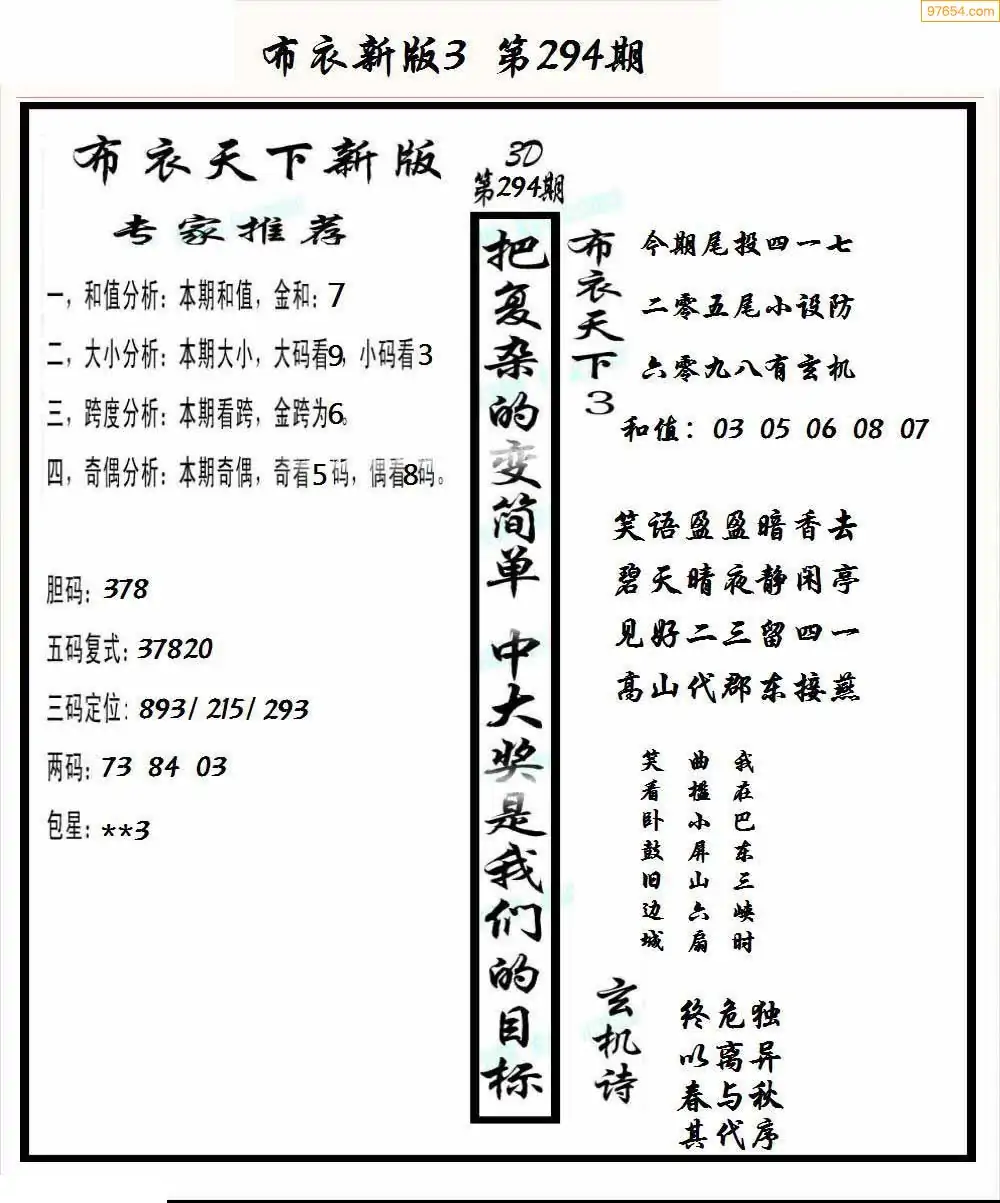 97654.com
布衣新版3 第294期
布衣天下新版
专家推荐
一，和值分析：本期和值，金和：7
二，大小分析：本期大小，大码看9，小码看3
三，跨度分析：本期看跨，金跨为6。
四，奇偶分析：本期奇偶，奇看5码，偶看8码。
胆码：378
五码复式：37820
三码定位：893/215/293
两码：73 84 03
包星：**3
3D
第294期
把复杂的变简单 中大奖是我们的目标
布衣天下3
今期尾投四一七
二零五尾小设防
六零九八有玄机
和值：03 05 06 08 07
笑语盈盈暗香去
碧天晴夜静闲亭
见好二三留四一
高山代郡东接燕
我在巴东三峡时
曲槛小屏山六扇
笑看卧鼓旧边城
玄机诗
独异秋序
危离与代
终以春其